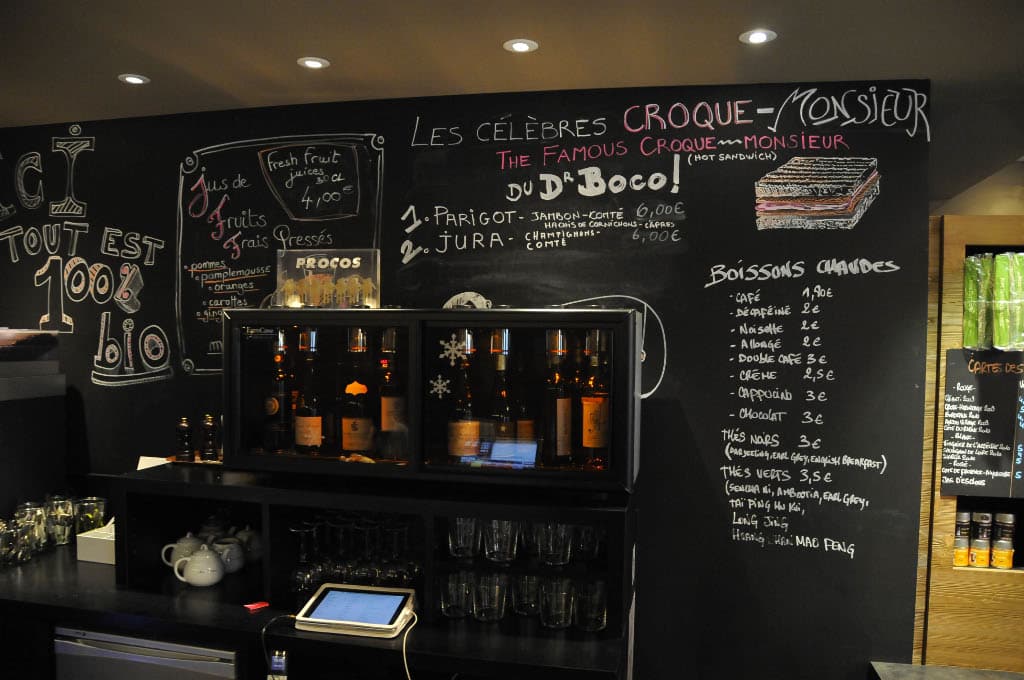 ICI
TOUT EST
100%
bio
Jus de
Fruits
Frais Pressés
fresh fruit
juices
30CL
4,00€
• pommes
• pamplemousse
• oranges
• carottes
PROCOS
LES CÉLÈBRES CROQUE-MONSIEUR
THE FAMOUS CROQUE-MONSIEUR
(HOT SANDWICH)
DU DR BOCO!
1. PARIGOT - JAMBON-COMTÉ 6,00€
HACHIS DE CORNICHONS - CÂPRES
2. JURA - CHAMPIGNONS- 6,00€
COMTÉ
BOISSONS CHAUDES
- CAFÉ 1,90€
- DÉCAFÉINÉ 2€
- NOISETTE 2€
- ALLONGÉ 2€
- DOUBLE CAFÉ 3€
- CRÈME 2,5€
- CAPPUCINO 3€
- CHOCOLAT 3€
THÉS NOIRS 3€
(DARJEELING, EARL GREY, ENGLISH BREAKFAST)
THÉS VERTS 3,5€
(SENCHA NI, AMBOOTIA, EARL GREY,
TAÏ PING HU KUI,
LUNG JING
MAO FENG
CARTES DES
- ROUGE -
- BLANC -
- ROSÉ -